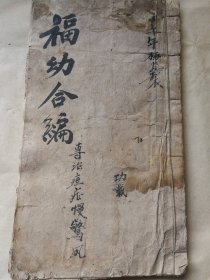 福幼合編
專治痘症慢驚風
功載